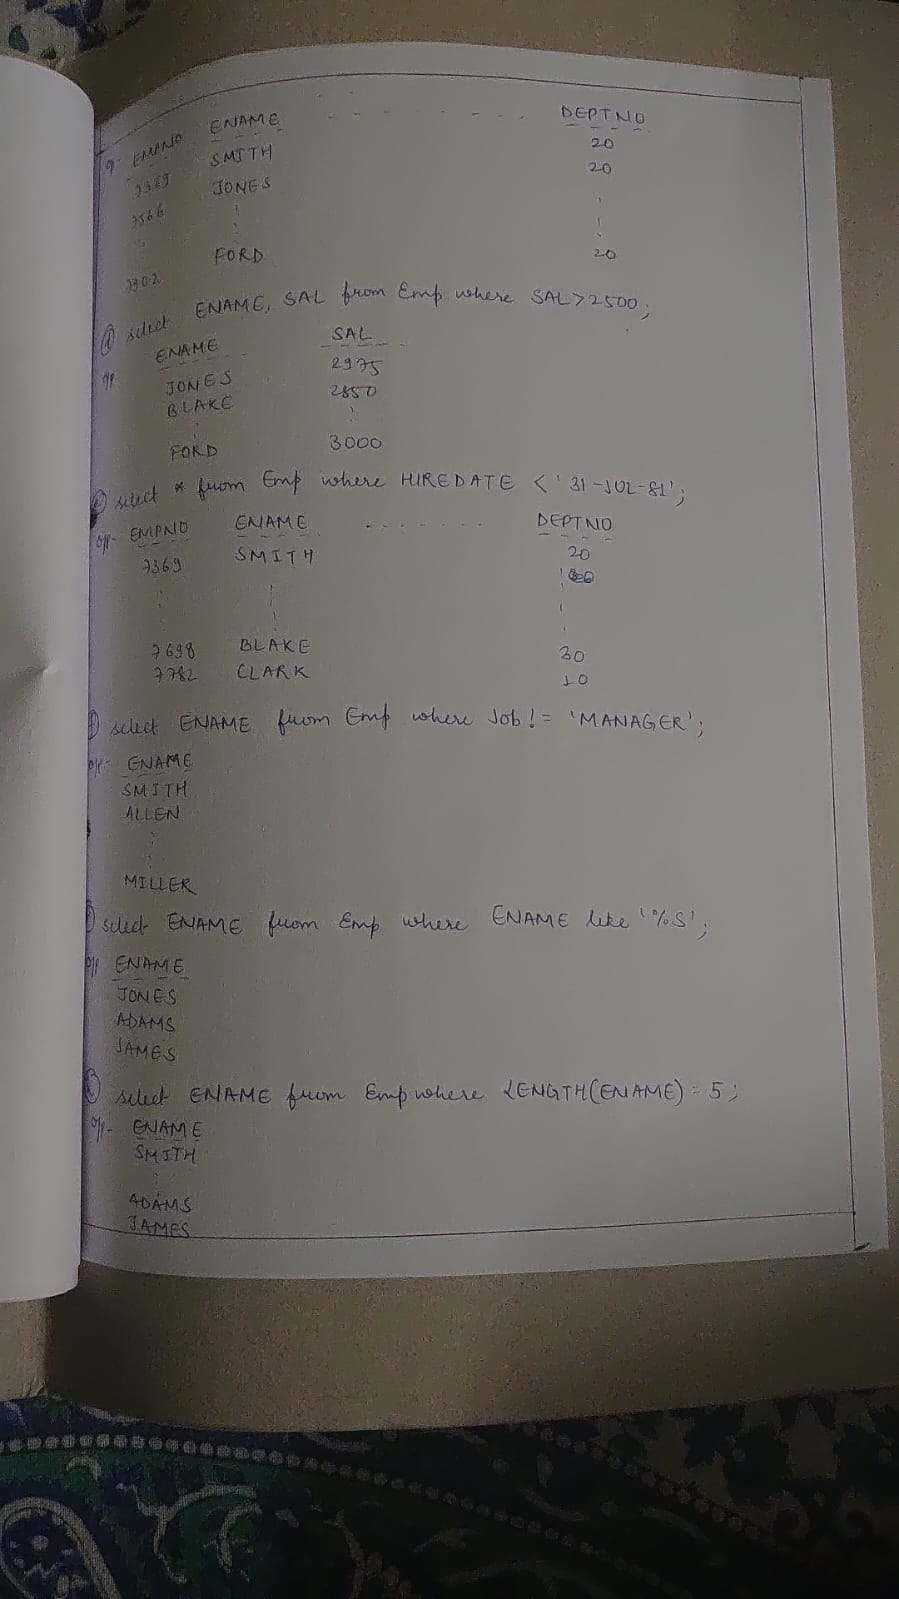 o/p- EMPNO ENAME - - - - - - - DEPTNO
7369 SMITH 20
7566 JONES 20
7902 FORD 20
(d) select ENAME, SAL from Emp where SAL>2500;
o/p. ENAME SAL
JONES 2975
BLAKE 2850
FORD 3000
(e) select * from Emp where HIREDATE < '31-JUL-81';
o/p- EMPNO ENAME - - - - - - - DEPTNO
7369 SMITH 20
7698 BLAKE 30
7782 CLARK 10
select ENAME from Emp where Job != 'MANAGER';
o/p:- ENAME
SMITH
ALLEN
MILLER
select ENAME from Emp where ENAME like '%S';
o/p ENAME
JONES
ADAMS
JAMES
select ENAME from Emp where LENGTH(ENAME) = 5;
o/p- ENAME
SMITH
ADAMS
JAMES